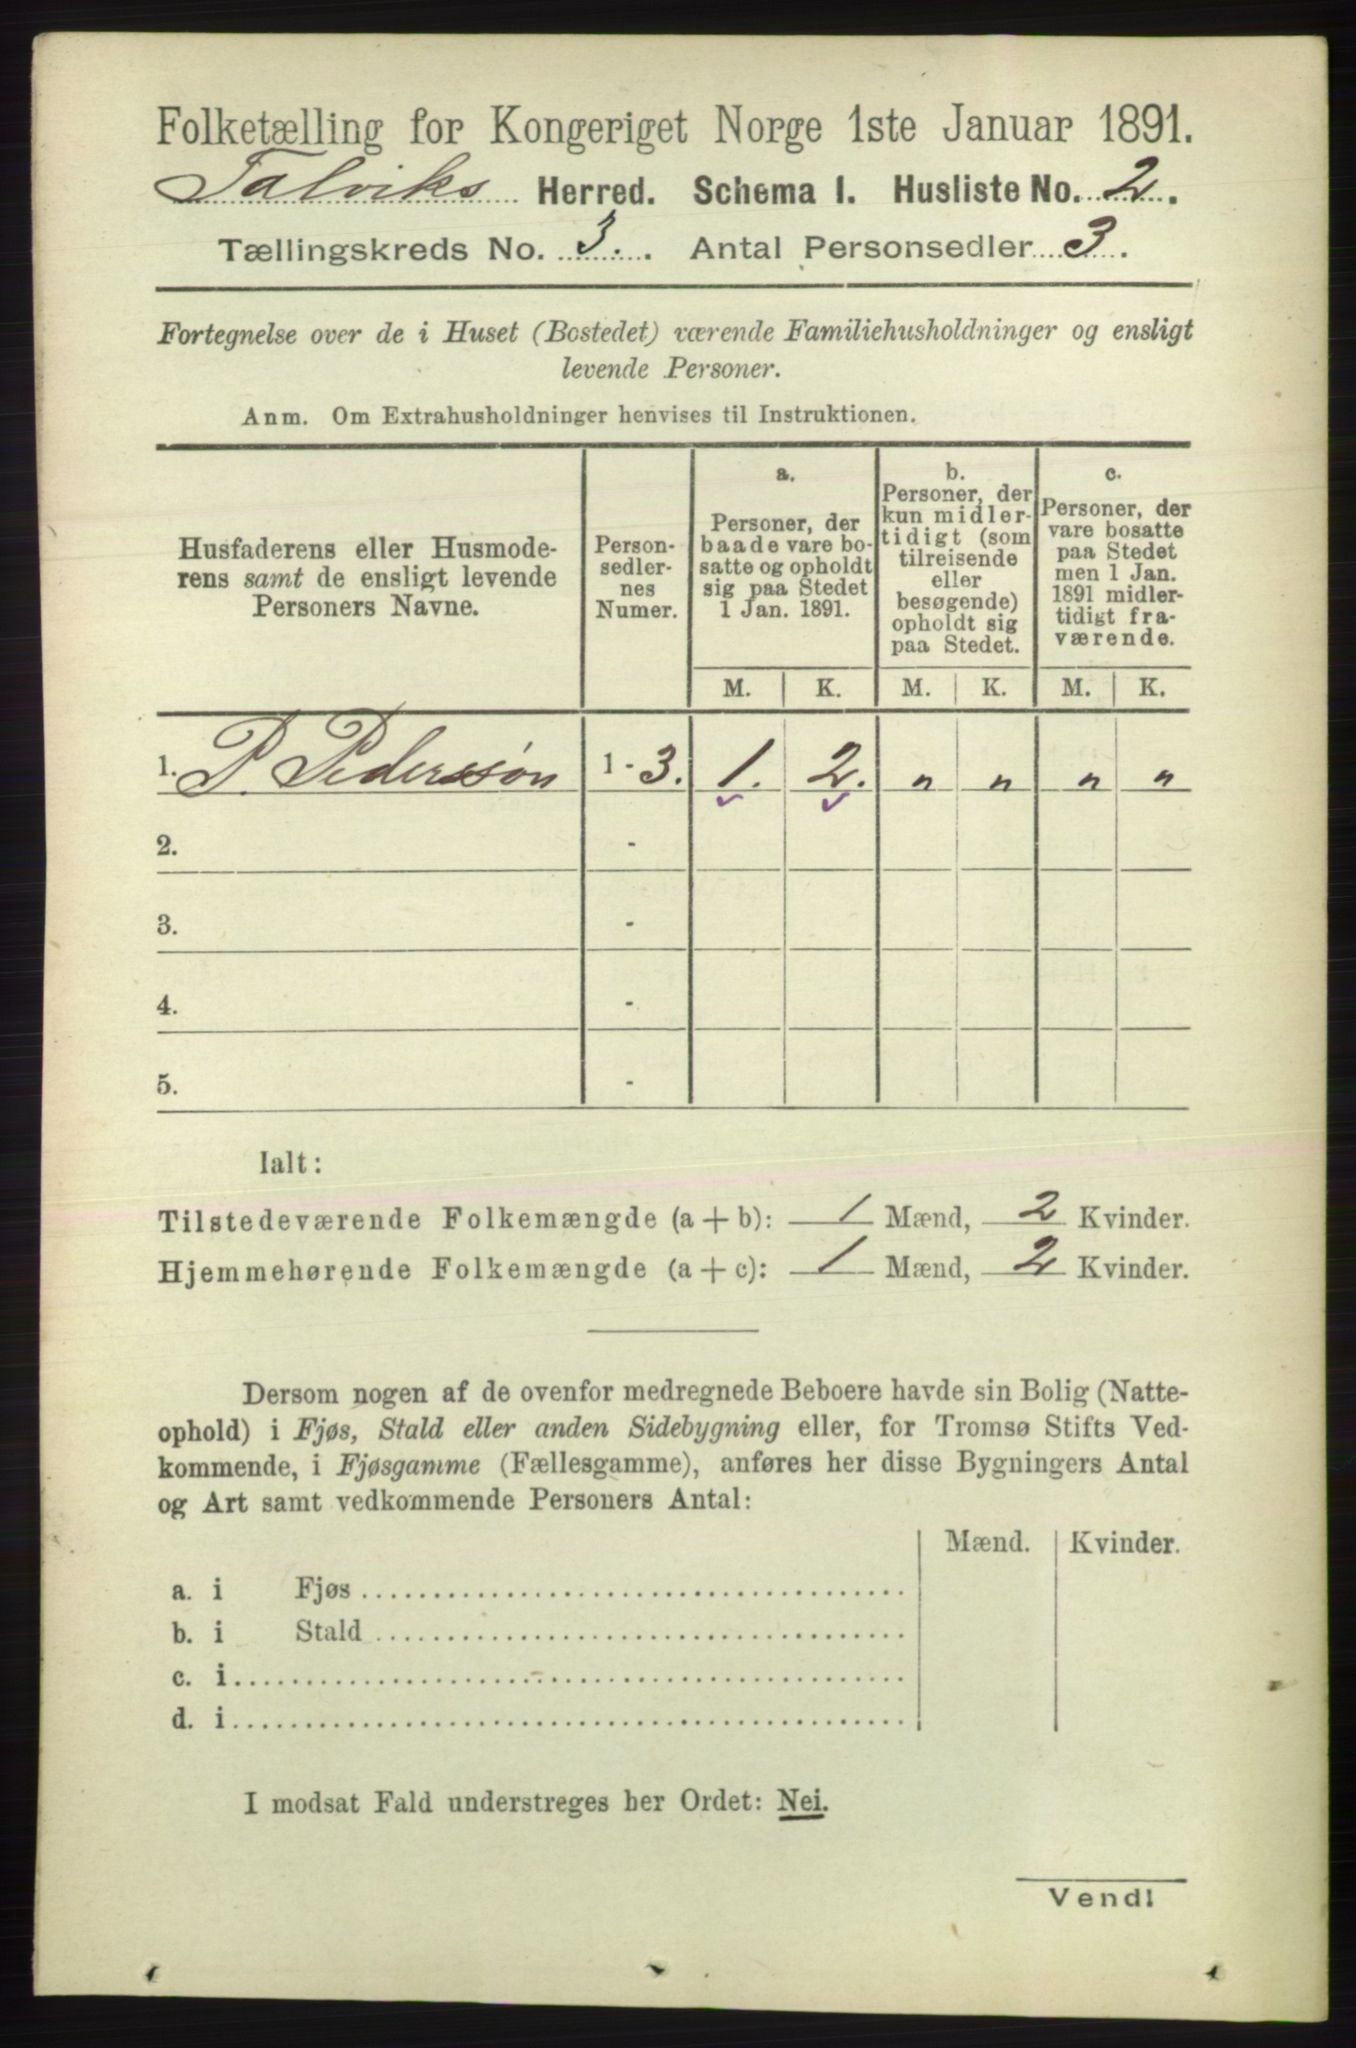 Folketælling for Kongeriget Norge 1ste Januar 1891.
Talviks Herred. Schema I. Husliste No. 2.
Tællingskreds No. 3. Antal Personsedler 3.
Fortegnelse over de i Huset (Bostedet) værende Familiehusholdninger og ensligt
levende Personer.
Anm. Om Extrahusholdninger henvises til Instruktionen.
Husfaderens eller Husmode-
rens samt de ensligt levende
Personers Navne.
Person-
sedler-
nes
Numer.
a.
Personer, der
baade vare bo-
satte og opholdt
sig paa Stedet
1 Jan. 1891.
b.
Personer, der
kun midler-
tidigt (som
tilreisende
eller
besøgende)
opholdt sig
paa Stedet.
c.
Personer, der
vare bosatte
paa Stedet
men 1 Jan.
1891 midler-
tidigt fra-
værende.
M. K. M. K. M. K.
1. P. Pederssøn 1 - 3. 1. 2. " " " "
2. -
3. -
4. -
5. -
Ialt:
Tilstedeværende Folkemængde (a + b): 1 Mænd, 2 Kvinder.
Hjemmehørende Folkemængde (a + c): 1 Mænd, 2 Kvinder.
Dersom nogen af de ovenfor medregnede Beboere havde sin Bolig (Natte-
ophold) i Fjøs, Stald eller anden Sidebygning eller, for Tromsø Stifts Ved-
kommende, i Fjøsgamme (Fællesgamme), anføres her disse Bygningers Antal
og Art samt vedkommende Personers Antal:
Mænd. Kvinder.
a. i Fjøs
b. i Stald
c. i
d. i
I modsat Fald understreges her Ordet: Nei.
Vend!